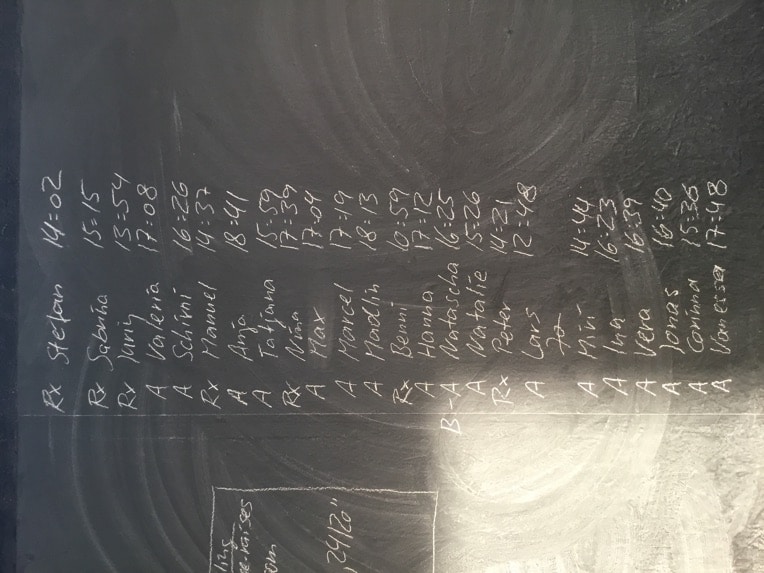 Rx Stefan 14:02
Rx Sabrina 15:15
Rx Jurij 13:54
A Valeria 17:08
A Schirni 16:26
Rx Manuel 14:37
A Anja 18:41
A Tatjana 15:59
Rx Nina 17:39
A Max 17:04
A Marcel 17:19
A Madlin 18:13
Rx Benni 10:59
A Hanna 17:12
B-A Natascha 16:25
A Natalie 15:26
Rx Peter 14:21
A Lars 12:48
A Miri 14:44
A Ina 16:23
A Vera 16:39
A Jonas 16:40
A Corinna 15:36
A Vanessa 17:48
24/20"